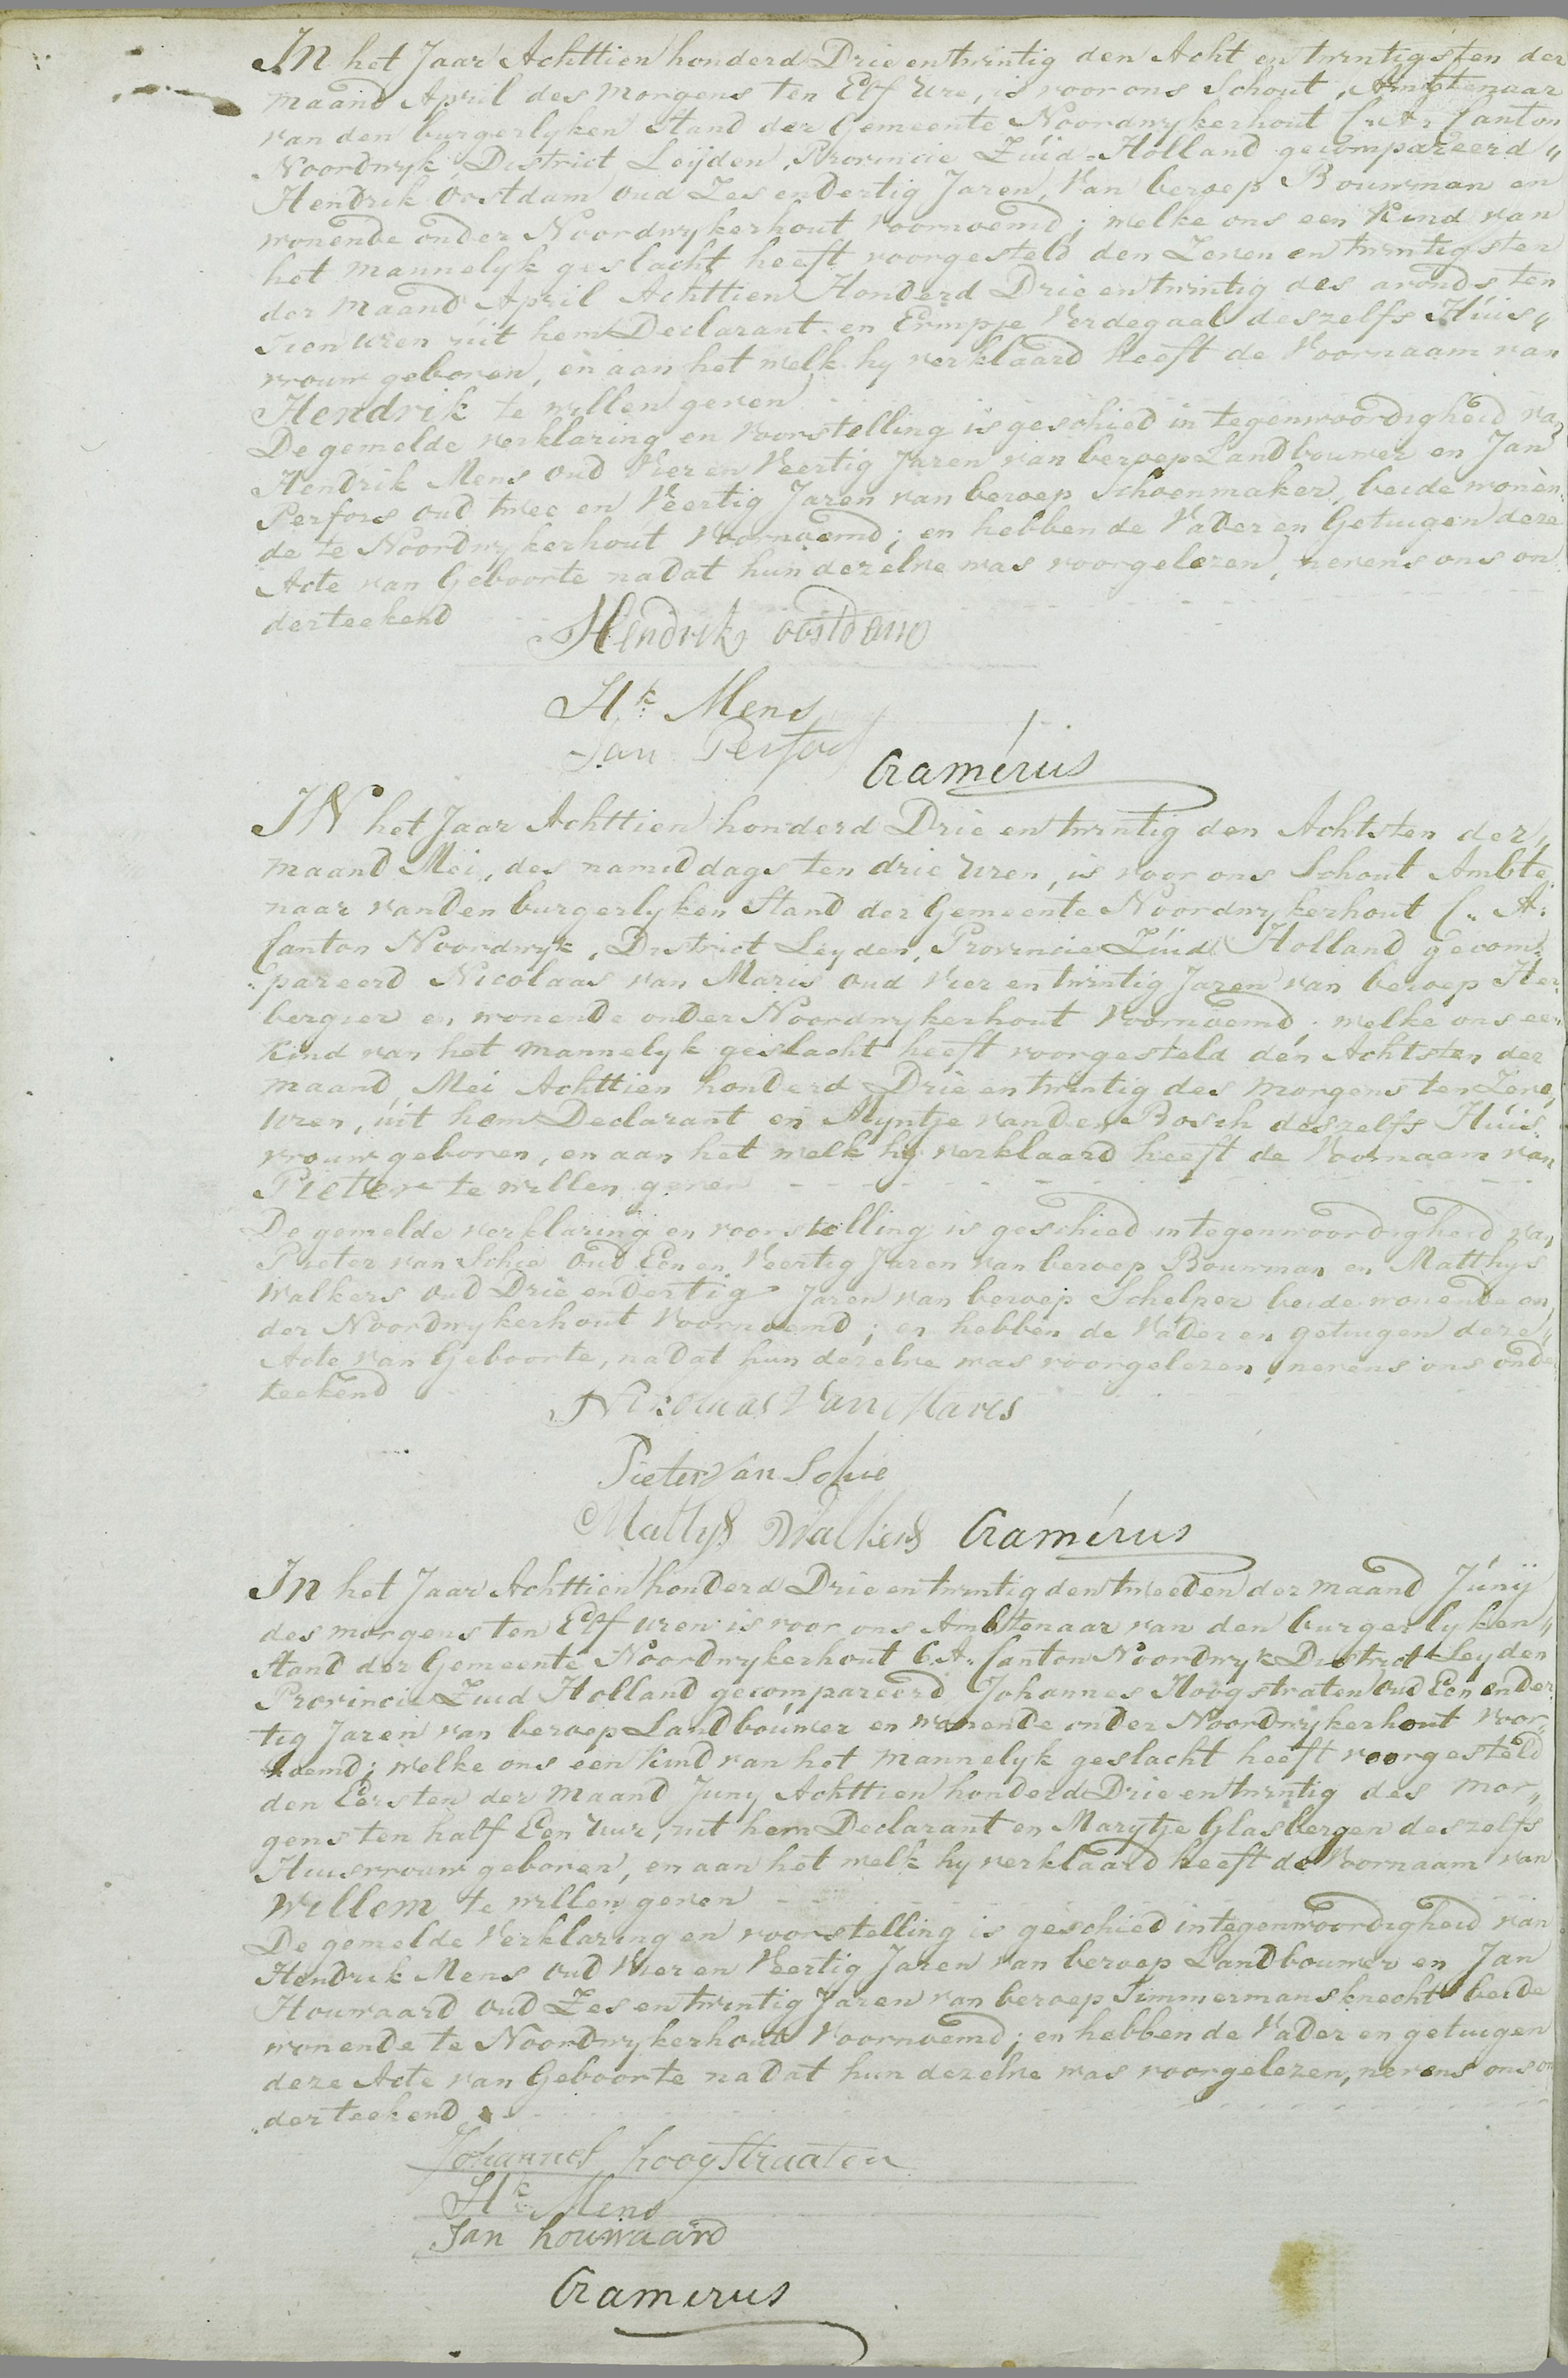 In het Jaar Achttien honderd Drie en twintig den Acht en twintigsten der
maand April des morgens ten Elf Ure, is voor ons Schout, Ambtenaar
van den burgerlyken Stand der Gemeente Noordwykerhout C: A: Canton
Noordwyk, District Leijden, Provincie Zuid-Holland gecompareerd "
Hendrik Oostdam oud Zes en Dertig Jaren, Van beroep Bouwman en
wonende onder Noordwykerhout Voornoemd; welke ons een Kind van
het mannelyk geslacht heeft voorgesteld den Zeven en twintigsten
der maand April Achttien Honderd Drie en twintig des avonds ten
Tien uren uit hem Declarant en Eimpje Verdegaal deszelfs Huis"
vrouw geboren, en aan het welk hy verklaard heeft de Voornaam van
Hendrik te willen geven
De gemelde verklaring en Voorstelling is geschied in tegenwoordigheid van
Hendrik Mens oud Vier en Veertig Jaren van beroep Landbouwer en Jan
Perfors oud twee en Veertig Jaren van beroep Schoenmaker, beide wonen
de te Noordwykerhout Voornoemd; en hebben de Vader en Getuigen deze
Acte van Geboorte na dat hun dezelve was voorgelezen, nevens ons on
derteekend
Hendrik oostdam
Hk: Mens
Jan Perfors
Cramérus
IN het Jaar Achttien honderd Drie en twintig den Achtsten der"
maand Mei, des namiddags ten drie Uren, is voor ons Schout Ambte
naar van den burgerlyken Stand der Gemeente Noordwykerhout C: A:
Canton Noordwyk, District Leyden, Provincie Zuid Holland gecom"
"pareerd Nicolaas van Maris oud Vier en twintig Jaren van beroep Her
bergier en wonende onder Noordwykerhout Voornoemd; welke ons een
Kind van het mannelyk geslacht heeft voorgesteld den Achtsten der
maand Mei Achttien honderd Drie en twintig des morgens ten Zeve
Uren, uit hem Declarant en Myntje van den Bosch deszelfs Huis
vrouw geboren, en aan het welk hy verklaard heeft de Voornaam van
Pieter te willen geven
De gemelde verklaring en voorstelling is geschied in tegenwoordigheid van
Pieter van Schie oud Een en Veertig Jaren van beroep Bouwman en Matthys
Walkers oud Drie en dertig Jaren van beroep Schelper beide wonende on
der Noordwykerhout Voornoemd; en hebben de Vader en getuigen deze"
Acte van Geboorte, na dat hun dezelve was voorgelezen, nevens ons onder
teekend
Nikolaas Van Maris
Pieter van Schie
Mattys Walkers Cramérus
In het Jaar Achttien honderd Drie en twintig den tweeden der maand Júnij
des morgens ten Elf uren is voor ons Ambtenaar van den burgerlyken"
Stand der Gemeente Noordwykerhout C. A: Canton Noordwyk District Leyden
Provincie Zuid Holland gecompareerd Johannes Hoogstraten oud Een en der
tig Jaren van beroep Landbouwer en wonende onder Noordwykerhout Voor"
noemd; welke ons een kind van het mannelyk geslacht heeft voorgesteld
den Eersten der maand Juny Achttien honderd Drie en twintig des mor"
gens ten half Een Uur, uit hem Declarant en Marytje Glasbergen deszelfs
Huisvrouw geboren, en aan het welk hy verklaard heeft de Voornaam van
Willem te willen geven
De gemelde Verklaring en voorstelling is geschied in tegenwoordigheid van
Hendrik Mens oud Vier en Veertig Jaren van beroep Landbouwer en Jan
Houwaard oud Zes en twintig Jaren van beroep Timmermansknecht beide
wonende te Noordwykerhout Voornoemd; en hebben de Vader en getuigen
deze Acte van Geboorte na dat hun dezelve was voorgelezen, nevens ons on
"derteekend
Johannes hoogstraaten
Hk: Mens
Jan houwaard
Cramerus